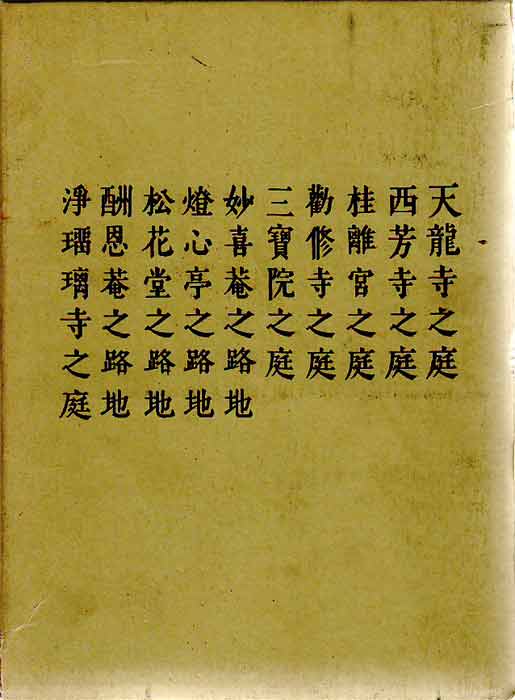 天龍寺之庭
西芳寺之庭
桂離宮之庭
勸修寺之庭
三寶院之庭
妙喜菴之路地
燈心亭之路地
松花堂之路地
酬恩菴之路地
淨瑠璃寺之庭